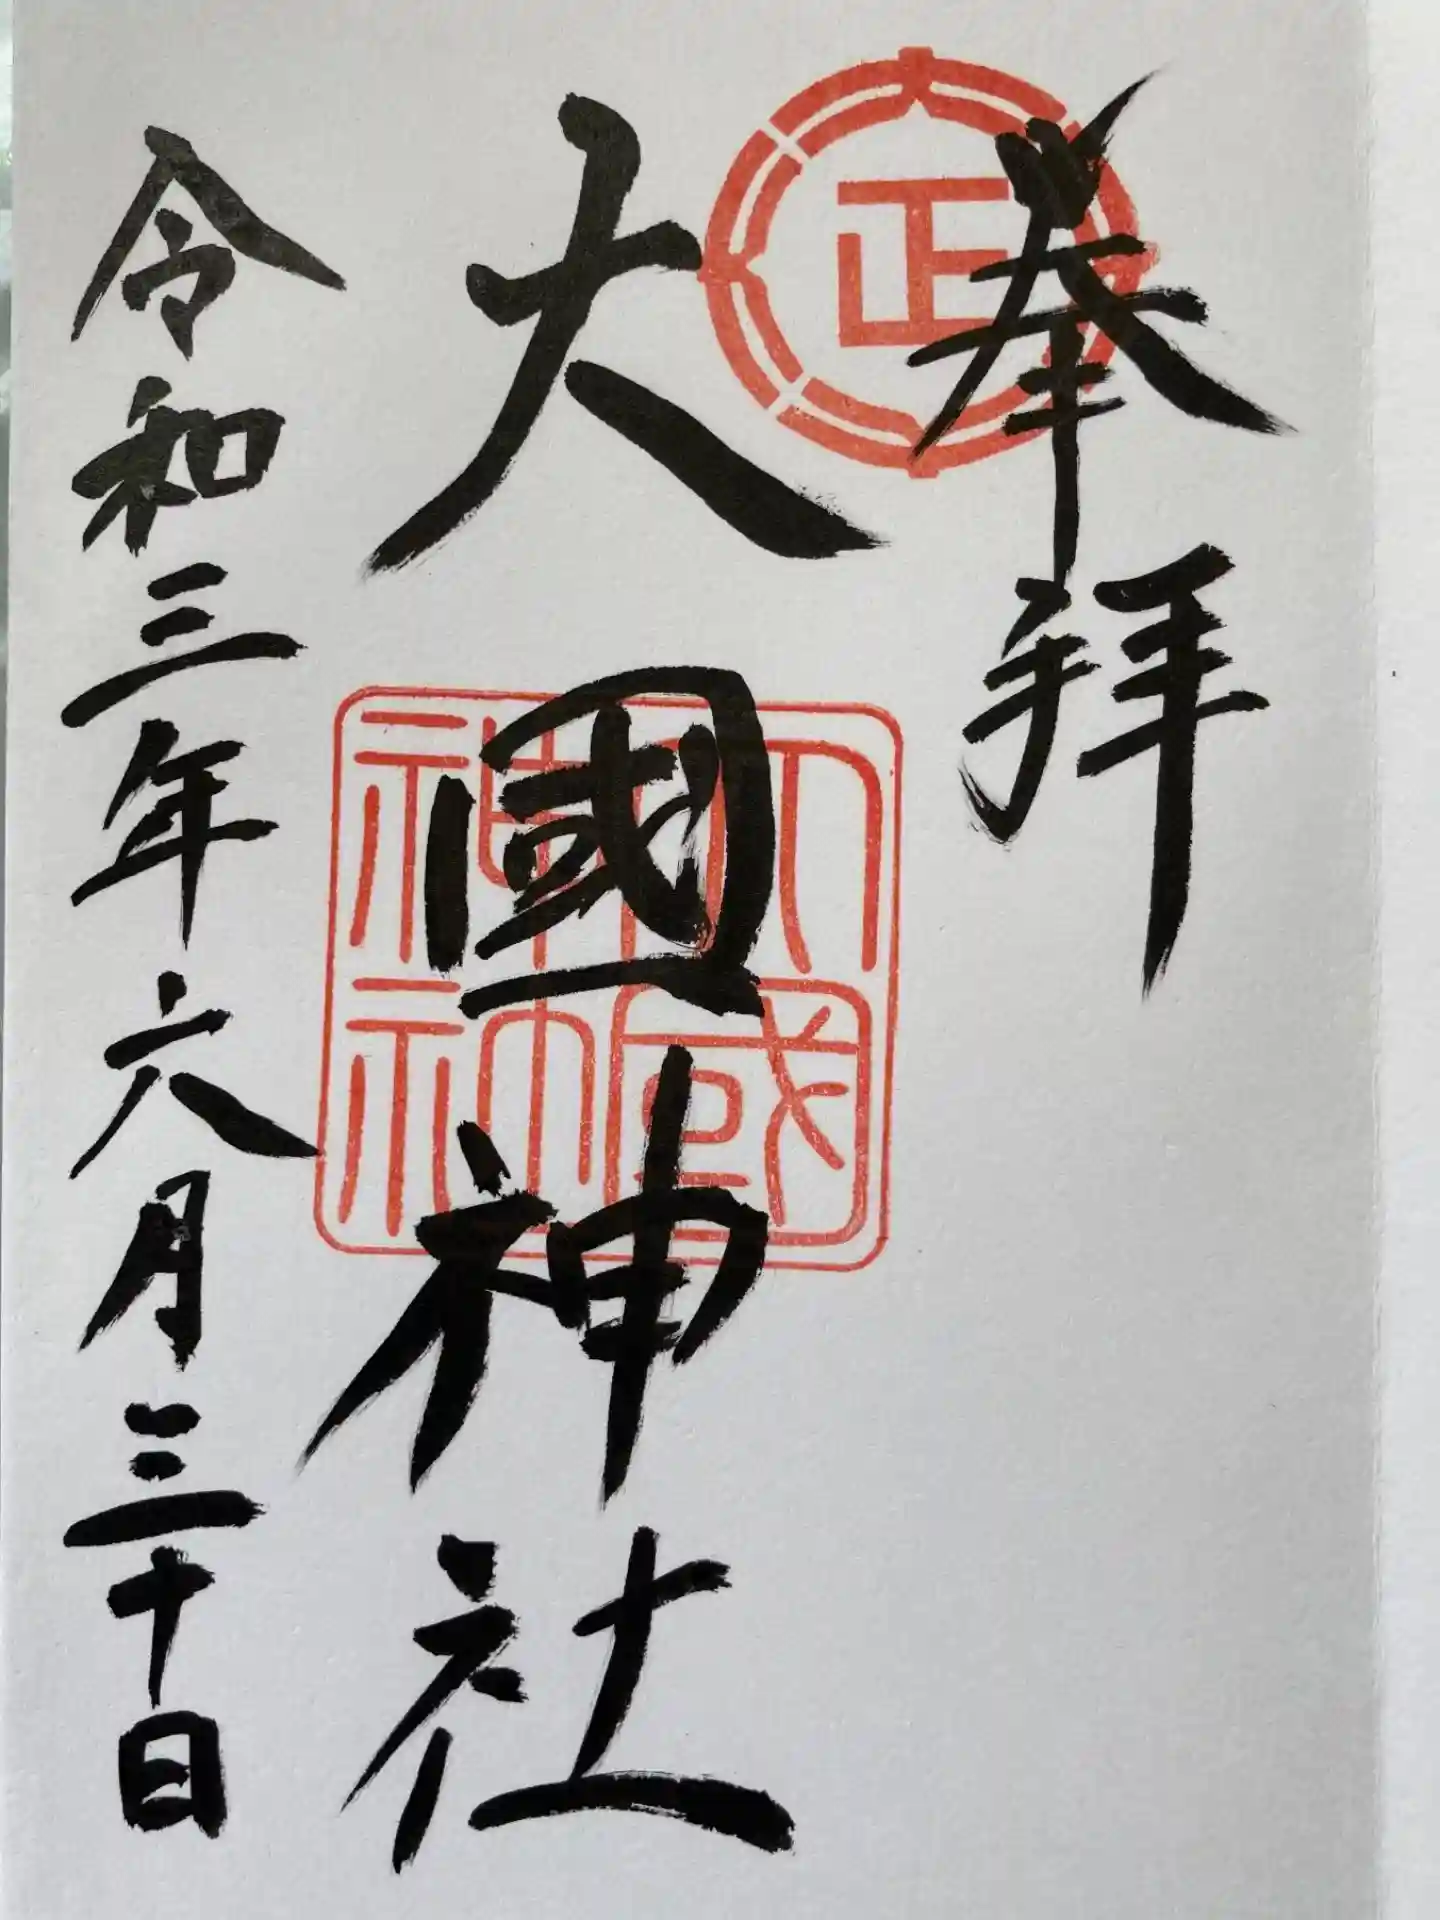 奉拝
正
大國神社
大國神社
令和三年六月三十日